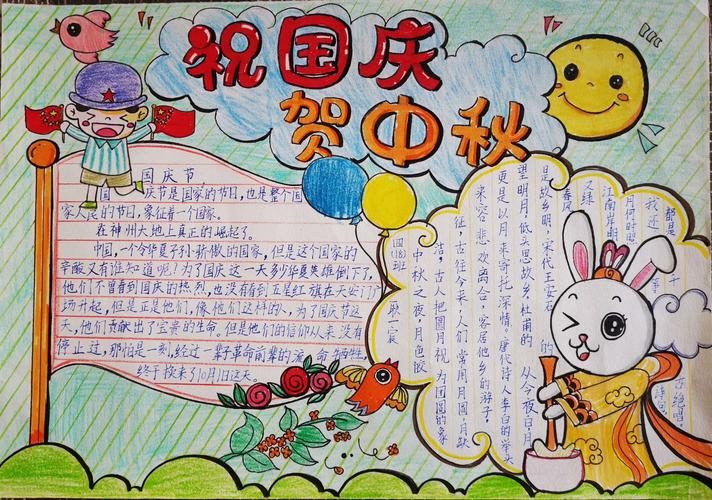 祝国庆
贺中秋
国庆节,
国 庆节是国家的节日,也是整个国
家人民的节日,象征着一个国家。
在神州大地上真正的崛起了。
中国,一个令华夏子孙骄傲的国家,但是这个国家的
辛酸又有谁知道呢?为了国庆这一天多少华夏英雄倒下了。
他们不曾看到国庆的热烈,也没有看到五星红旗在天安门广
场升起,但是正是他们,像他们这样的人,为了国庆节这
天,他们贡献出了宝贵的生命,但是他们的信仰从来没有
停止过,那怕是一刻,经过一辈子革命前辈的流 牺牲,
终于换来了10月1日这天。
四(18)班
中秋之夜,月色皎
洁,古人把圆月视为团圆的象
征,古往今来,人们常用月圆,月缺
来容 悲欢离合,客居他乡的游子,
更是以月来寄托深情。唐代诗人李白的举头
望明月,低头思故乡,杜甫的 从今夜白,月
是故乡明,宋代王安石 的
春风
又绿
江南岸,明
月何时照
我还
都是 千
古绝唱
诗句